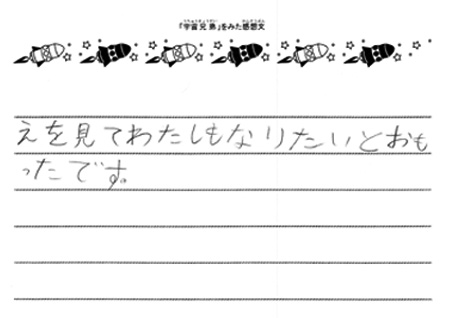 「宇宙兄弟」をみた感想文
えを見てわたしもなりたいとおも
ったです。